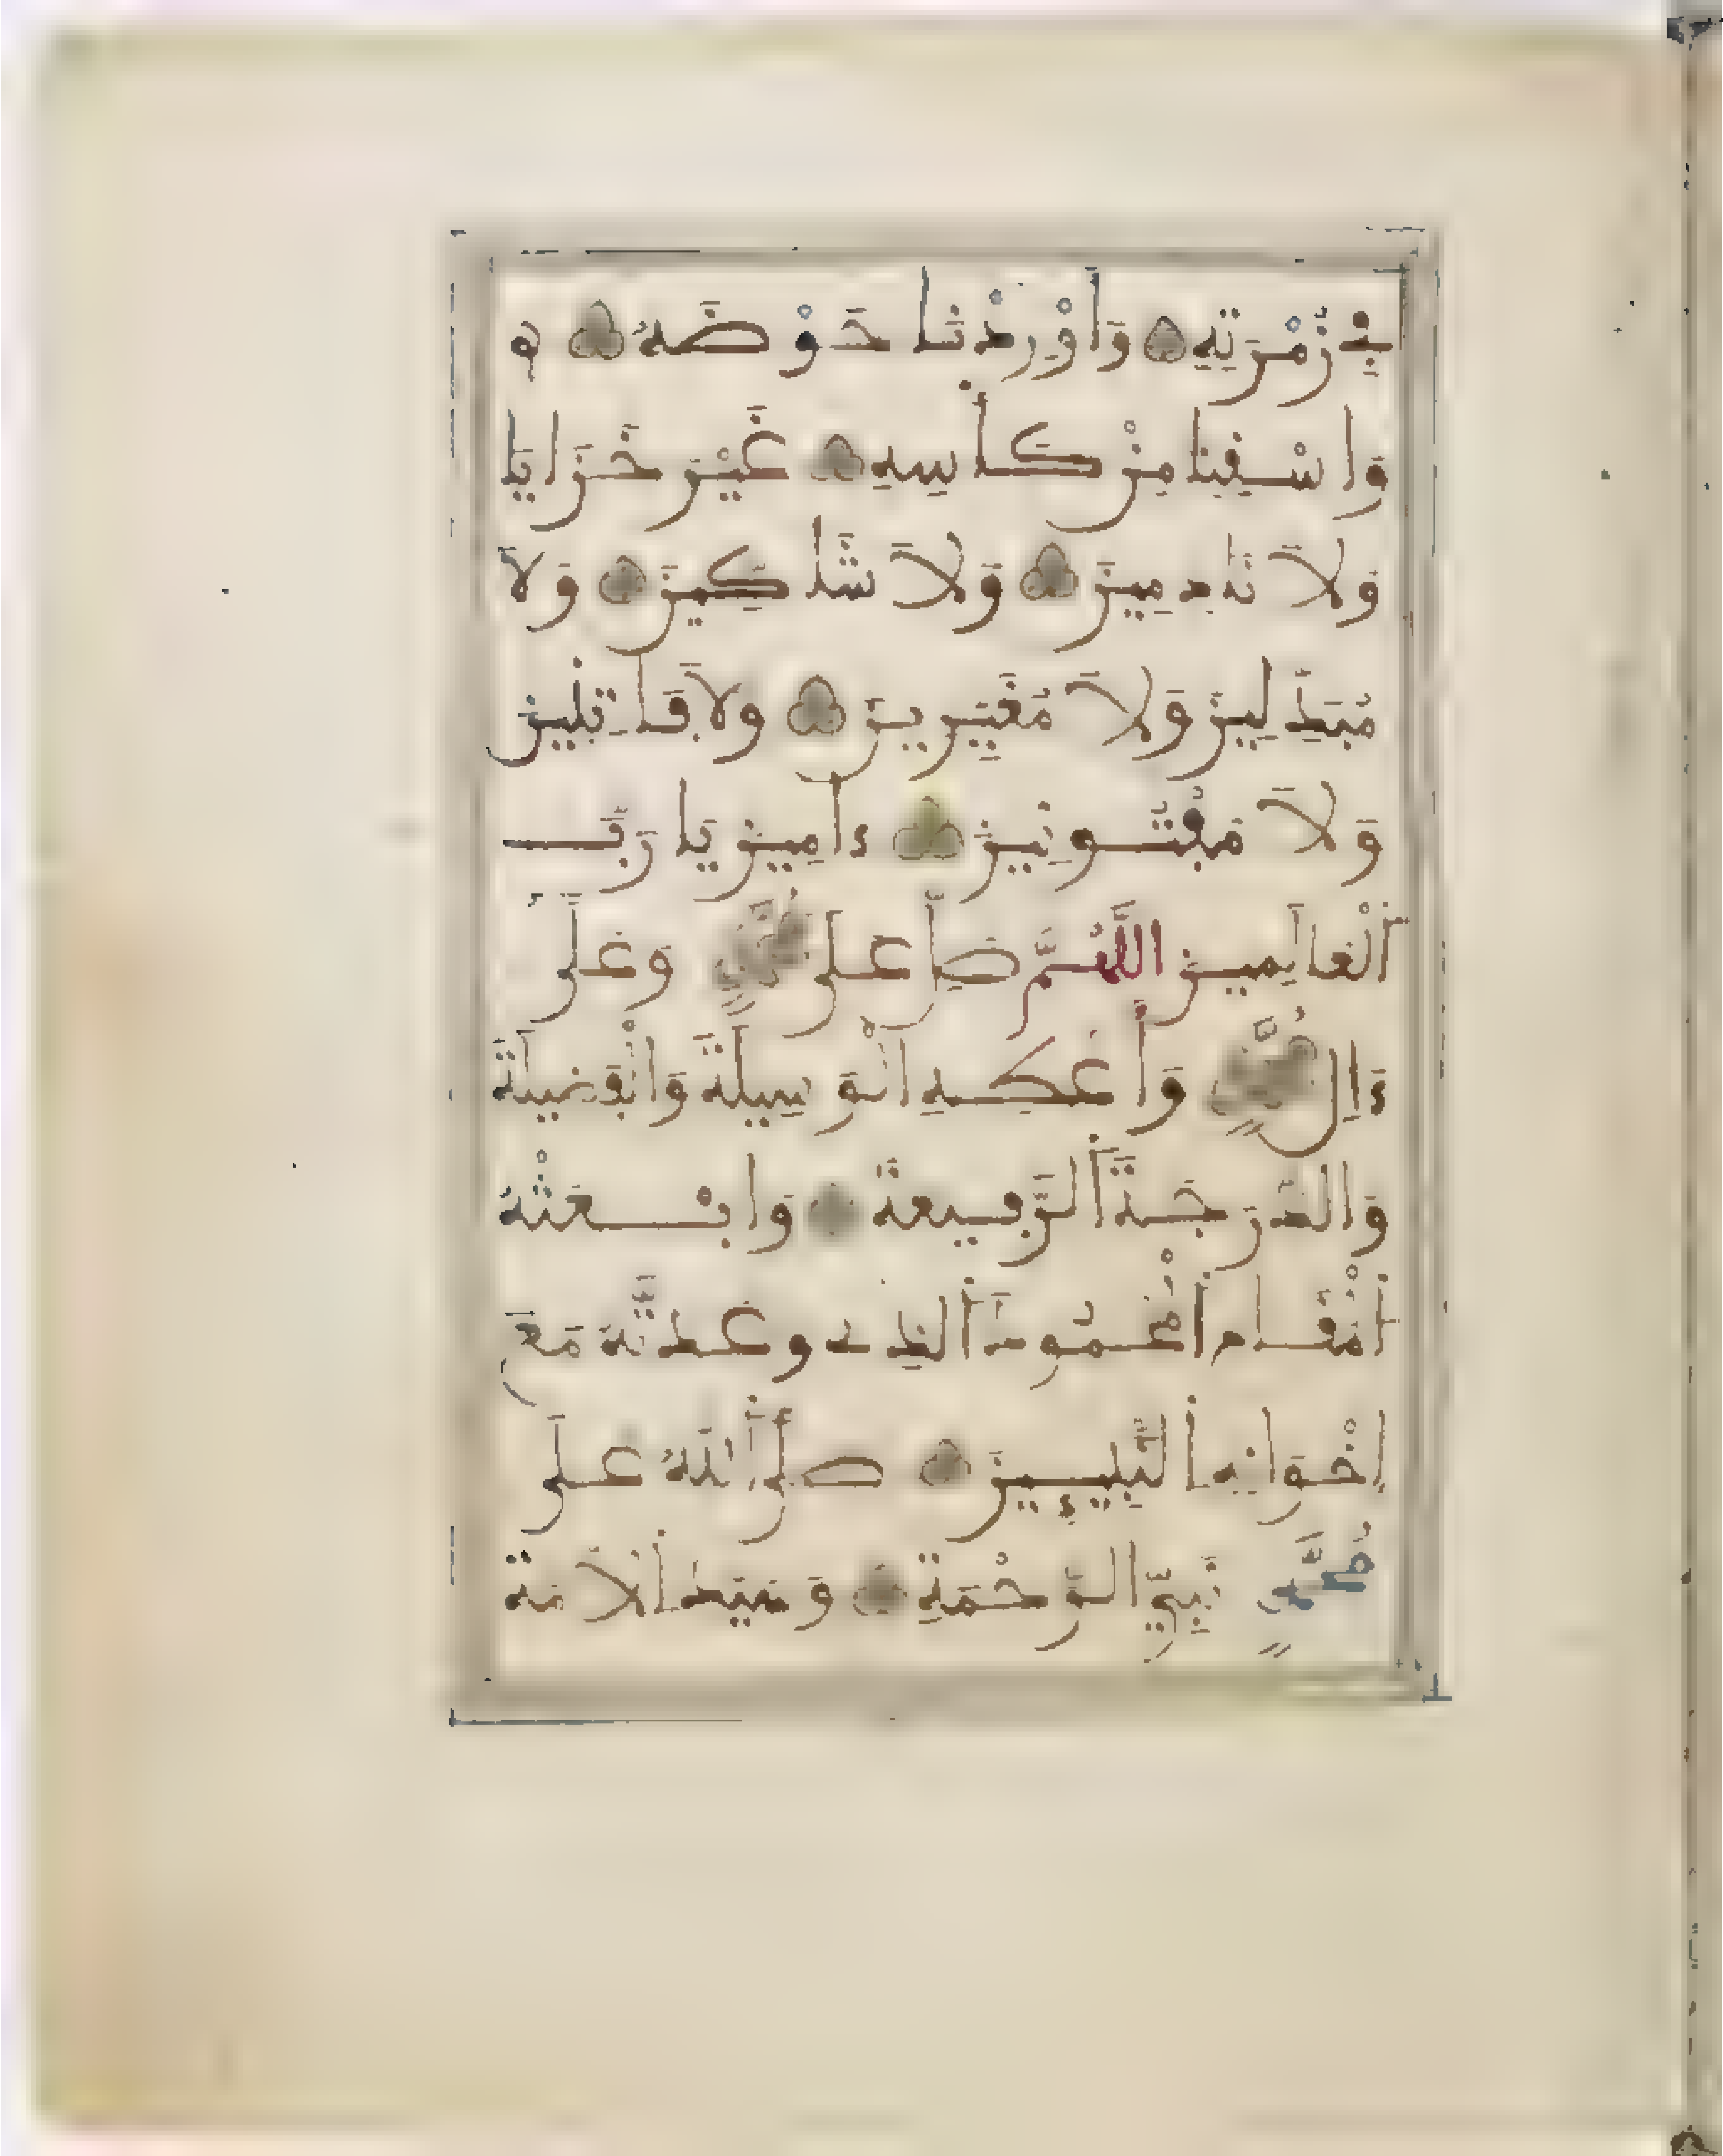 فِي زُمْرَتِهِ وَأَوْرِدْنَا حَوْضَهُ
وَاسْقِنَا مِنْ كَأْسِهِ غَيْرَ خَزَايَا
وَلَا نَادِمِينَ وَلَا شَاكِّينَ وَلَا
مُبَدِّلِينَ وَلَا مُغَيِّرِينَ وَلَا فَاتِنِينَ
وَلَا مَفْتُونِينَ ءَامِينَ يَا رَبَّ
الْعَالَمِينَ اللَّهُمَّ صَلِّ عَلَى مُحَمَّدٍ وَعَلَى
ءَالِ مُحَمَّدٍ وَأَعْطِهِ الْوَسِيلَةَ وَالْفَضِيلَةَ
وَالدَّرَجَةَ الرَّفِيعَةَ وَابْعَثْهُ
الْمَقَامَ الْمَحْمُودَ الَّذِي وَعَدتَّهُ مَعَ
إِخْوَانِهِ النَّبِيِّينَ صَلَّى اللَّهُ عَلَى
مُحَمَّدٍ نَبِيِّ الرَّحْمَةِ وَسَيِّدِ الْأُمَّةِ